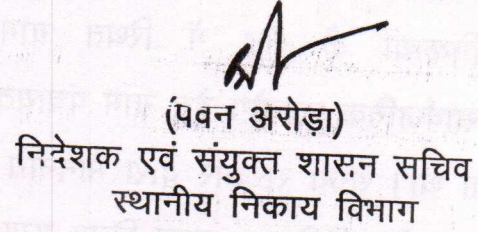 (पवन अरोड़ा)
निदेशक एवं संयुक्त शासन सचिव
स्थानीय निकाय विभाग